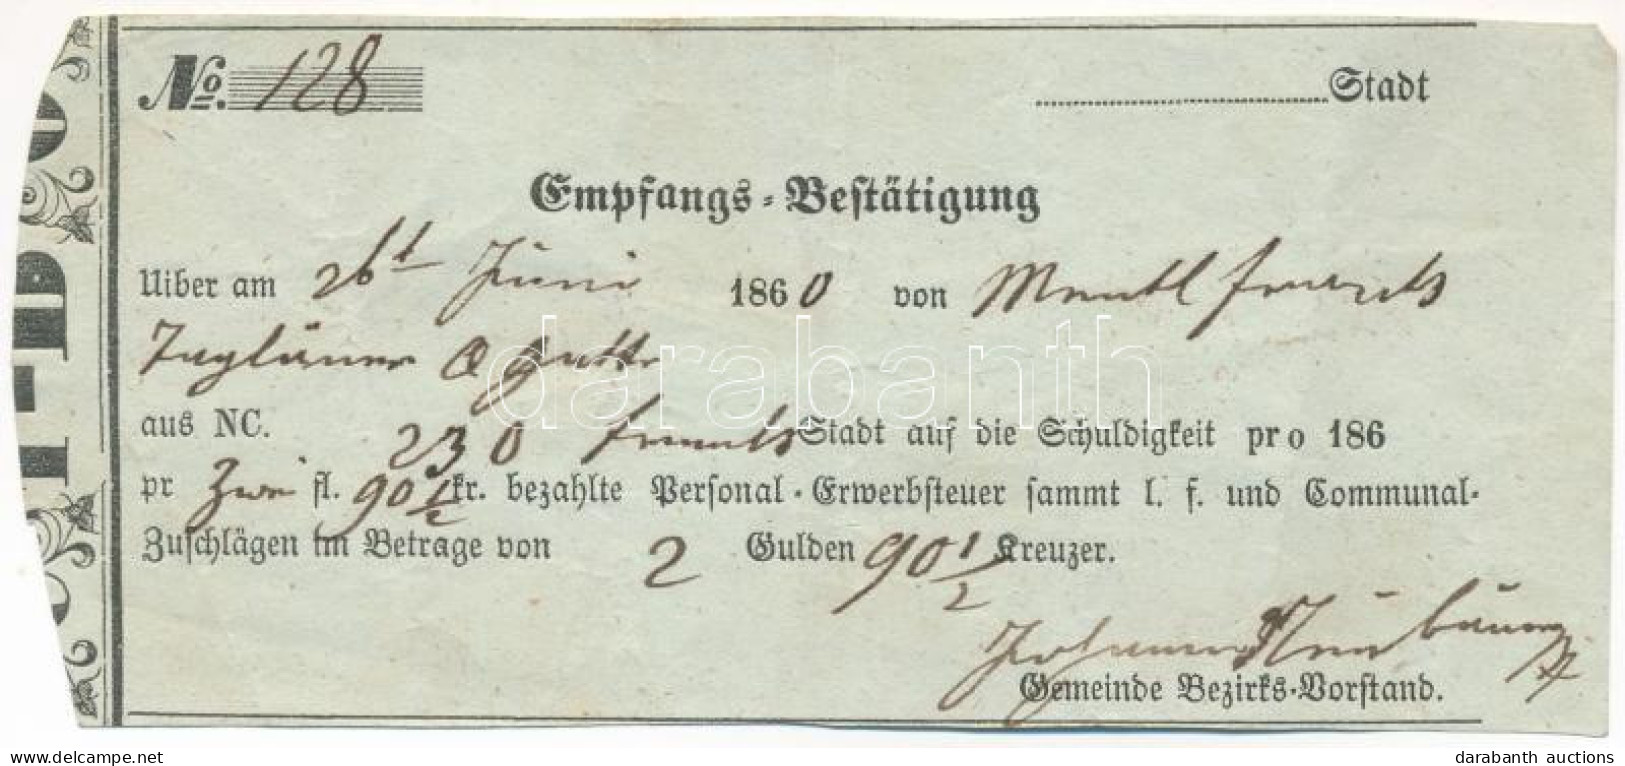 No. 128
Stadt
Empfangs-Bestätigung
Uiber am 26t Juni 1860 von
Taglöner
aus NC. 230 Stadt auf die Schuldigkeit pro 186
pr Zwei fl. 90 1/2 kr. bezahlte Personal-Erwerbsteuer sammt l. f. und Communal-
Zuschlägen im Betrage von 2 Gulden 90 1/2 Kreuzer.
Johann Neubauer
Gemeinde Bezirks-Vorstand.
darabanth
darabanth auctions